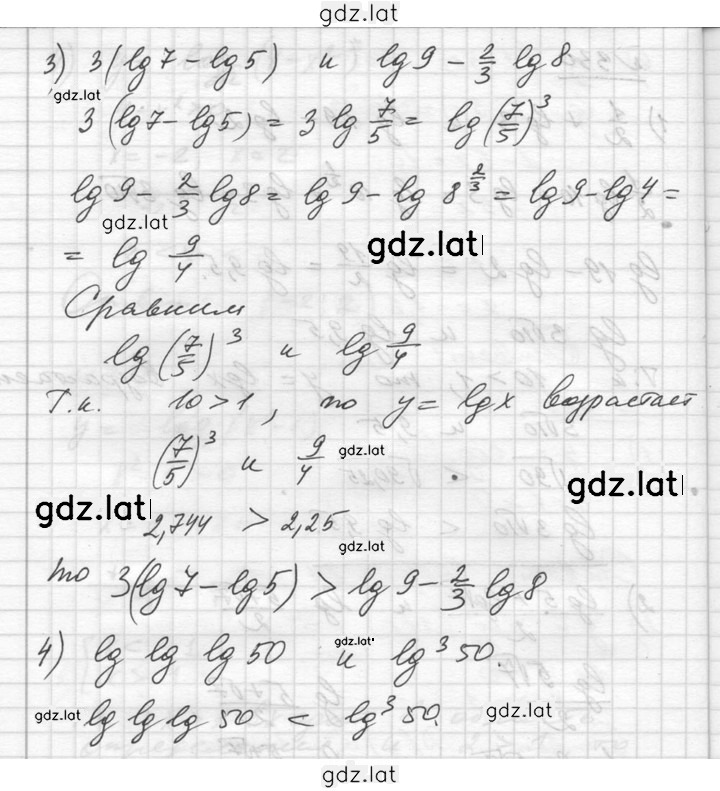 gdz.lat
3) 3(lg7 − lg5) и lg9 − 2/3 lg8
gdz.lat
3(lg7 − lg5) = 3 lg 7/5 = lg(7/5)³
lg9 − 2/3 lg8 = lg9 − lg 8^(2/3) = lg9 − lg4 =
gdz.lat
= lg 9/4 gdz.lat
Сравним
lg(7/5)³ и lg 9/4
Т.к. 10>1, то y = lgx возрастает
(7/5)³ и 9/4 gdz.lat
gdz.lat gdz.lat
2,744 > 2,25
gdz.lat
то 3(lg7 − lg5) > lg9 − 2/3 lg8
4) lg lg lg 50 gdz.lat и lg³50.
gdz.lat lg lg lg 50 < lg³50. gdz.lat
gdz.lat